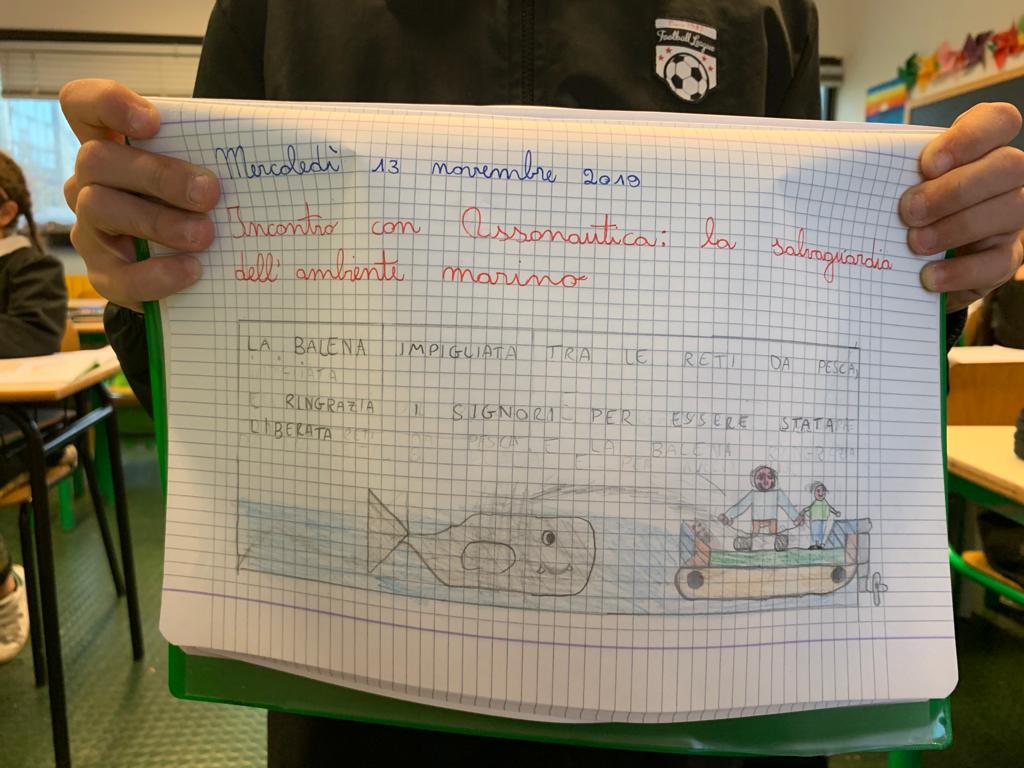 Football League
Mercoledì 13 novembre 2019
Incontro con Assonautica: la salvaguardia
dell'ambiente marino
LA BALENA IMPIGLIATA TRA LE RETI DA PESCA,
E RINGRAZIA I SIGNORI PER ESSERE STATA
LIBERATA